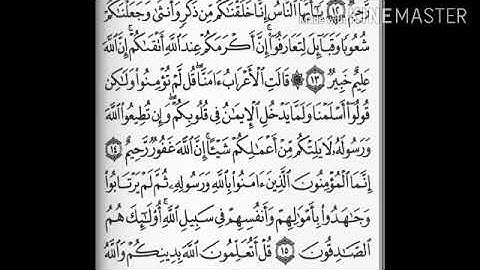 رَّحِيمٌ ١٢ يَٰٓأَيُّهَا ٱلنَّاسُ إِنَّا خَلَقْنَٰكُم مِّن ذَكَرٍ وَأُنثَىٰ وَجَعَلْنَٰكُمْ
شُعُوبًا وَقَبَآئِلَ لِتَعَارَفُوٓا۟ إِنَّ أَكْرَمَكُمْ عِندَ ٱللَّهِ أَتْقَىٰكُمْ إِنَّ ٱللَّهَ
عَلِيمٌ خَبِيرٌ ١٣ ۞ قَالَتِ ٱلْأَعْرَابُ ءَامَنَّا قُل لَّمْ تُؤْمِنُوا۟ وَلَٰكِن
قُولُوٓا۟ أَسْلَمْنَا وَلَمَّا يَدْخُلِ ٱلْإِيمَٰنُ فِى قُلُوبِكُمْ وَإِن تُطِيعُوا۟ ٱللَّهَ
وَرَسُولَهُۥ لَا يَلِتْكُم مِّنْ أَعْمَٰلِكُمْ شَيْـًٔا إِنَّ ٱللَّهَ غَفُورٌ رَّحِيمٌ ١٤
إِنَّمَا ٱلْمُؤْمِنُونَ ٱلَّذِينَ ءَامَنُوا۟ بِٱللَّهِ وَرَسُولِهِۦ ثُمَّ لَمْ يَرْتَابُوا۟
وَجَٰهَدُوا۟ بِأَمْوَٰلِهِمْ وَأَنفُسِهِمْ فِى سَبِيلِ ٱللَّهِ أُو۟لَٰٓئِكَ هُمُ
ٱلصَّٰدِقُونَ ١٥ قُلْ أَتُعَلِّمُونَ ٱللَّهَ بِدِينِكُمْ وَٱللَّهُ
KINEMASTER